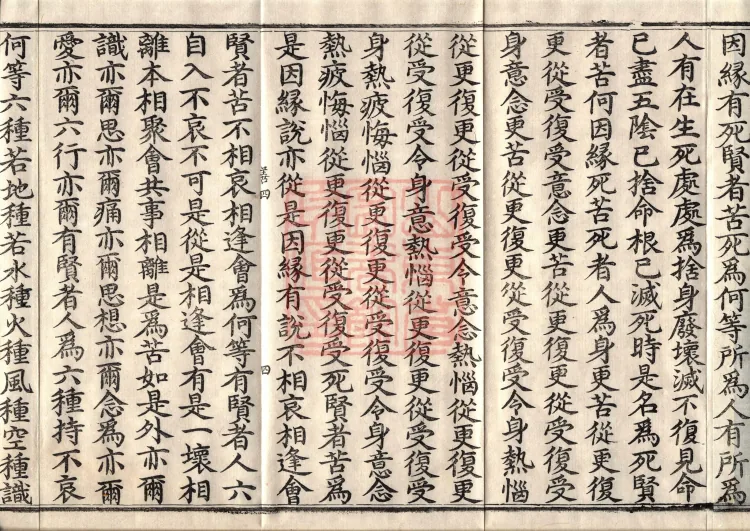 因緣有死賢者苦死爲何等所爲人有所爲
人有在生死處處爲捨身廢壞滅不復見命
已盡五陰已捨命根已滅死時是名爲死賢
者苦何因緣死苦死者人爲身更苦從更復
更從受復受意念更苦從更復更從受復受
身意念更苦從更復更從受復受今身熱惱
從更復更從受復受今意念熱惱從更復更
從受復受今身意熱惱從更復更從受復受
身熱疲悔惱從更復更從受復受今身意念
熱疲悔惱從更復更從受復受死賢者苦爲
是因緣說亦從是因緣有說不相哀相逢會
四
賢者苦不相哀相逢會爲何等有賢者人六
自入不哀不可是從是相逢會有是一壞相
離本相聚會共事相離是爲苦如是外亦爾
識亦爾思亦爾痛亦爾思想亦爾念爲亦爾
愛亦爾六行亦爾有賢者人爲六種持不哀
何等六種若地種若水種火種風種空種識